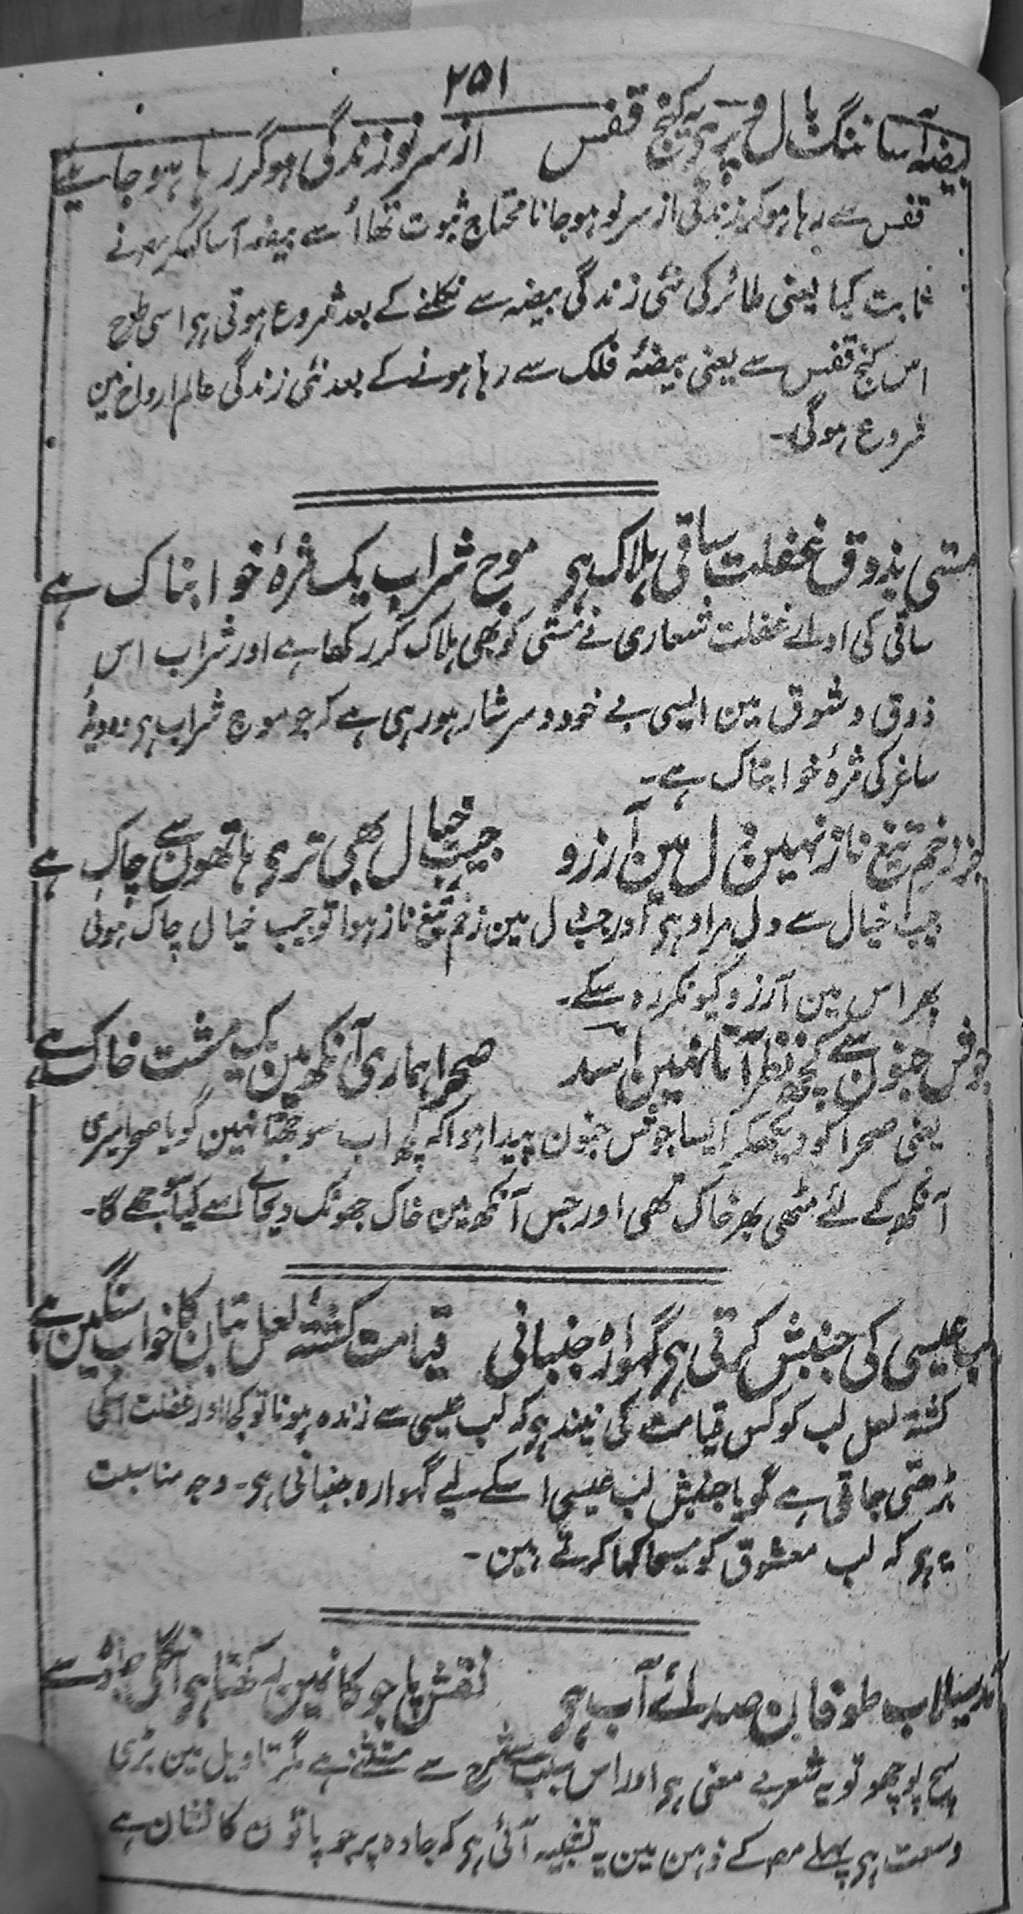 ۲۵۱
بیضہ آسا ننگ بال و پر ہی یہ کنج قفس از سر نو زندگی ہو گر رہا ہو جایئے
قفس سے رہا ہو کر زندگی از سر نو ہو جانا محتاج ثبوت تھا اُسے بیضہ آسا کہکر مصنف نے
ثابت کیا یعنی طائر کی نئی زندگی بیضہ سے نکلنے کے بعد شروع ہوتی ہی اسی طرح
اس کنج قفس سے یعنی بیضۂ فلک سے رہا ہونے کے بعد نئی زندگی عالم ارواح مین
شروع ہوگی۔
مستی بذوق غفلت ساقی ہلاک ہی موج شراب یک مژۂ خوابناک ہے
ساقی کی ادائے غفلت شعاری نے مستی کو بھی ہلاک کر رکھا ہے اور شراب اس
ذوق و شوق مین ایسی بے خود و سرشار ہو رہی ہے کہ جو موج شراب ہی وہ دیدۂ
ساغر کی مژۂ خوابناک ہے۔
جز زخم تیغ ناز نہین دل مین آرزو جیب خیال بھی ترے ہاتھون سے چاک ہے
جیب خیال سے دل مراد ہی اور جب دل مین زخم تیغ ناز ہوا تو جیب خیال چاک ہوئی
پھر اس مین آرزو کیونکر رہ سکے۔
جوش جنون سے کچھ نظر آتا نہین اسد صحرا ہماری آنکھ مین یک مشت خاک ہے
یعنی صحرا کو دیکھکر ایسا جوش جنون پیدا ہوا کہ کچھ اب سوجھتا نہین گویا صحرا میری
آنکھ کے لئے مٹھی بھر خاک تھی اور جس آنکھ مین خاک جھونک دیجائے اُسے کیا سوجھے گا۔
لب عیسی کی جنبش کرتی ہی گہوارہ جنبانی قیامت کشتۂ لعل بتان کا خواب سنگین ہے
کشتۂ لعل لب کو کس قیامت کی نیند ہی کہ لب عیسی سے زندہ ہونا تو کجا اور غفلت اُسکی
بڑھتی جاتی ہے گویا جنبش لب عیسی اسکے لیے گہوارہ جنبانی ہی۔ وجہ مناسبت
یہ ہی کہ لب معشوق کو مسیحا کہا کرتے ہین۔
آمد سیلاب طوفان صدائے آب ہی نقش پا جو کان مین رکھتا ہی انگلی جادہ سے
سچ پوچھو تو یہ شعر بے معنی ہی اور اس سبب سے شرح سے مستثنے ہے مگر تاویل مین بڑی
وسعت ہی پہلے مصنف کے ذہن مین یہ تشبیہ آئی ہی کہ جادہ پر جو پاؤن کا نشان ہے